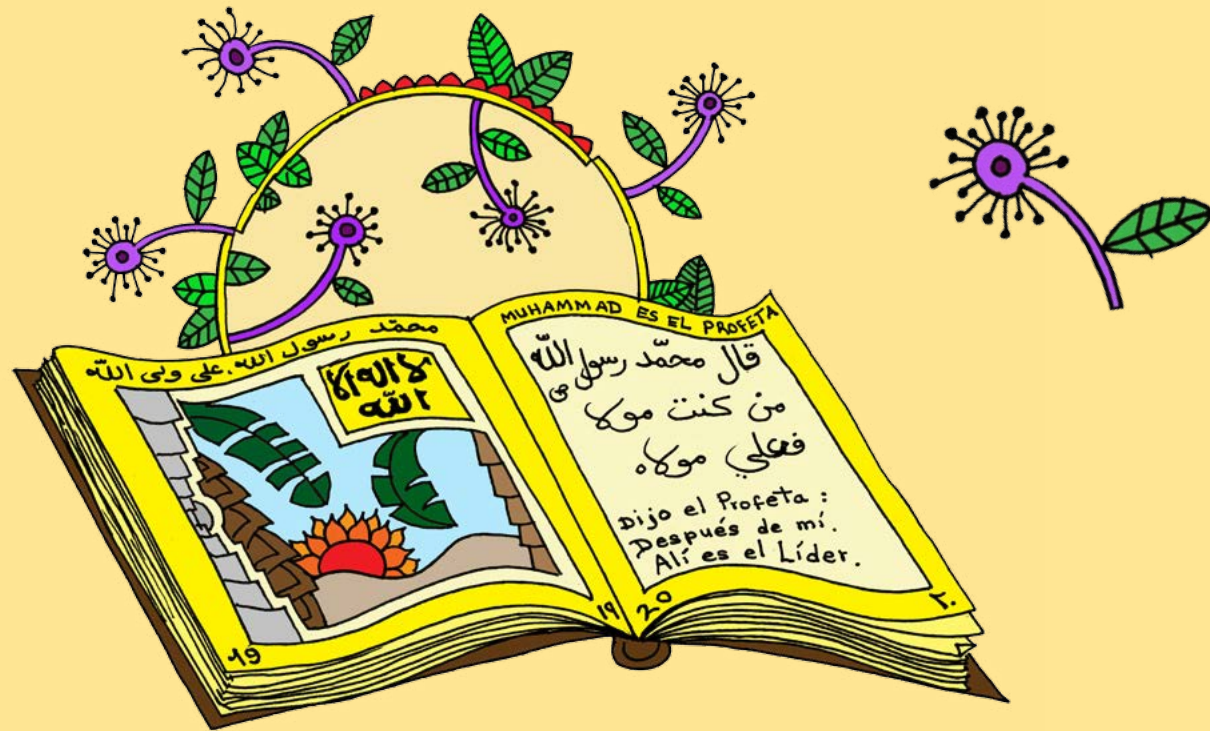 محمّد رسول الله. على ولى الله
لا اله الا
الله
19
١٩
MUHAMMAD ES EL PROFETA
قال محمّد رسول الله ص
من كنت مولا
فعلي مولاه
Dijo el Profeta :
Después de mí.
Alí es el Líder.
20
٢٠